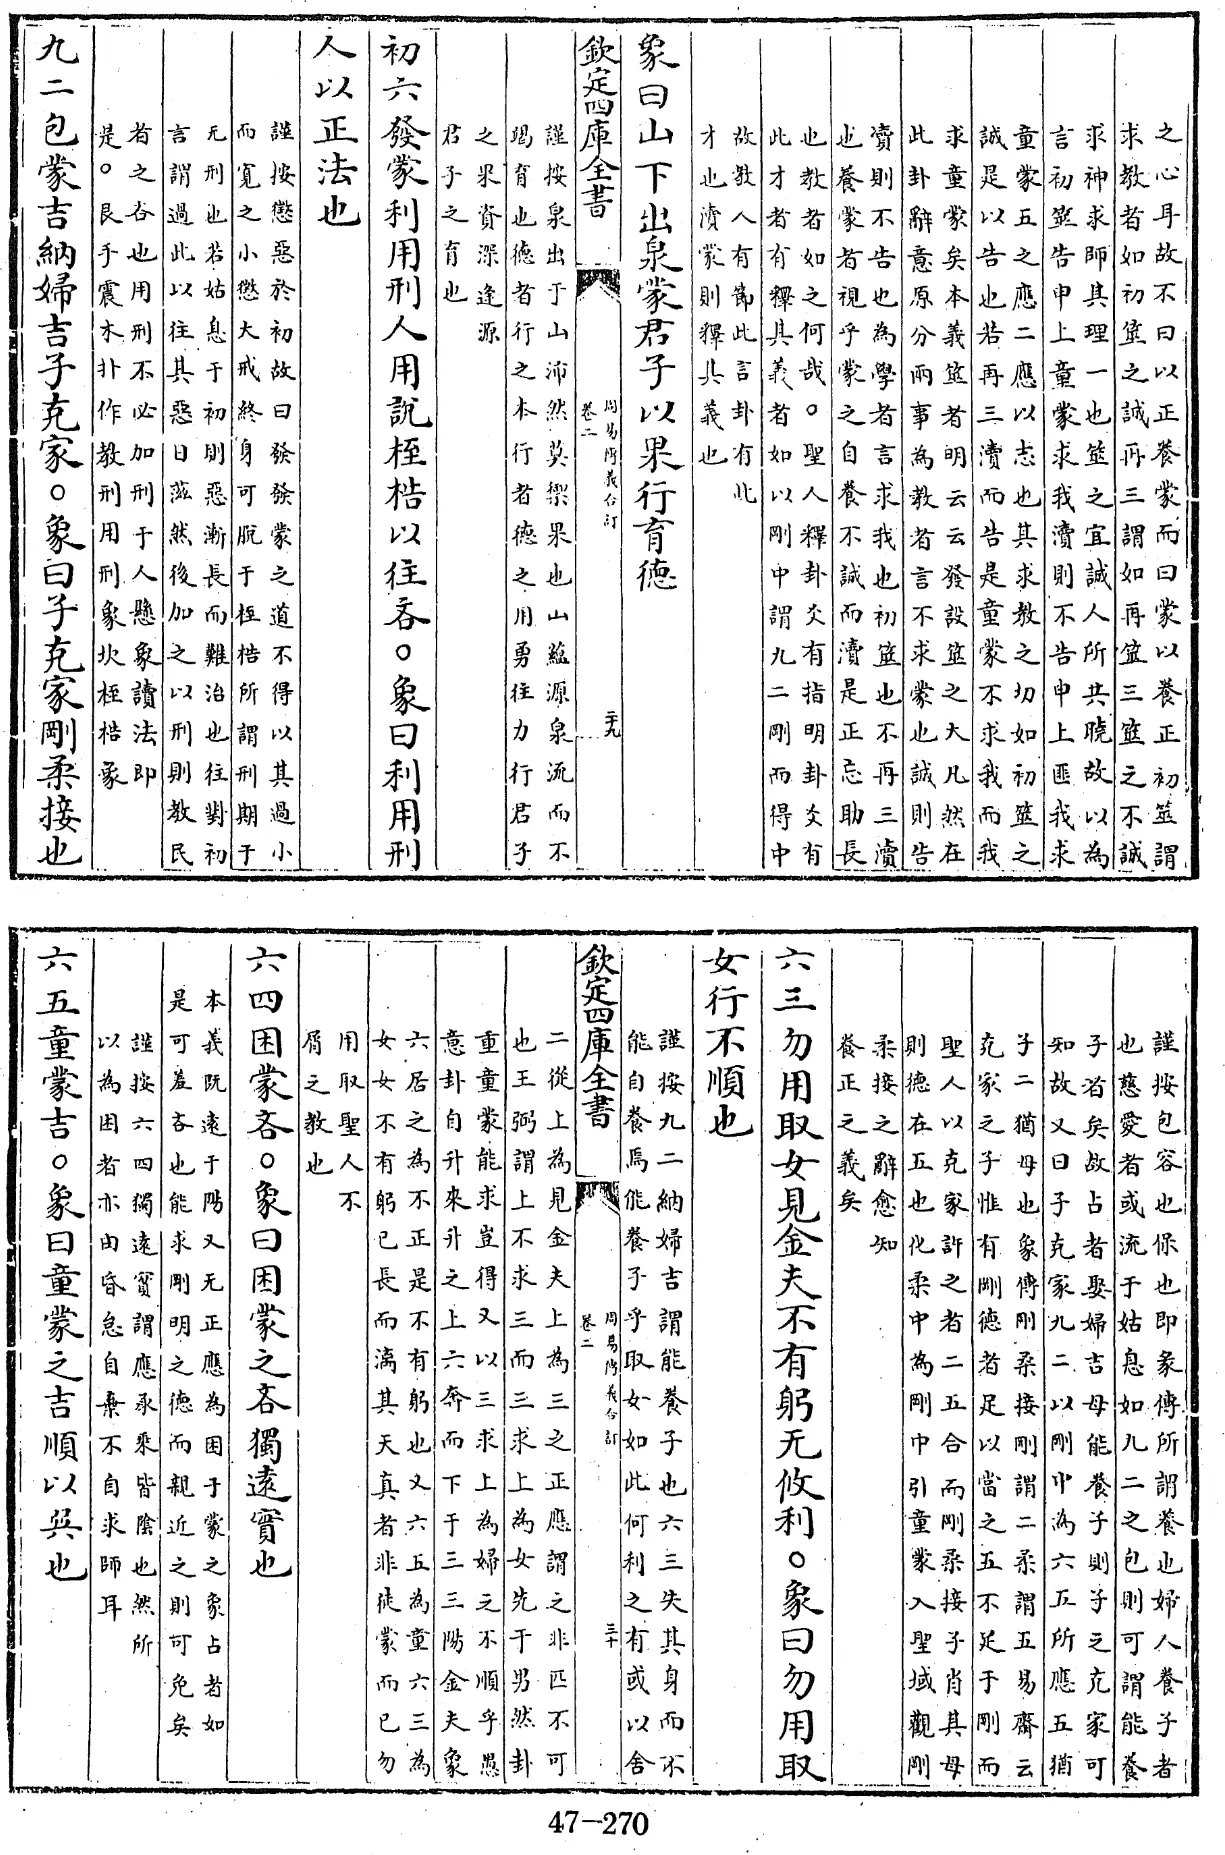 之心耳故不曰以正養蒙而曰蒙以養正初筮謂
求教者如初筮之誠再三謂如再筮三筮之不誠
求神求師其理一也筮之宜誠人所共曉故以為
言初筮告申上童蒙求我瀆則不告申上匪我求
童蒙五之應二應以志也其求教之切如初筮之
誠是以告也若再三瀆而告是童蒙不求我而我
求童蒙矣本義筮者明云云發設筮之大凡然在
此卦辭意原分兩事為教者言不求蒙也誠則告
瀆則不告也為學者言求我也初筮也不再三瀆
也養蒙者視乎蒙之自養不誠而瀆是正忘助長
也教者如之何哉○聖人釋卦爻有指明卦爻有
此才者有釋其義者如以剛中謂九二剛而得中
故教人有節此言卦有此
才也瀆蒙則釋其義也
象曰山下出泉蒙君子以果行育德
欽定四庫全書
周易函義合訂
卷二
二十九
謹按泉出于山沛然莫禦果也山蘊源泉流而不
竭育也德者行之本行者德之用勇往力行君子
之果資深逢源
君子之育也
初六發蒙利用刑人用說桎梏以往吝○象曰利用刑
人以正法也
謹按懲惡於初故曰發發蒙之道不得以其過小
而寛之小懲大戒終身可脫于桎梏所謂刑期于
无刑也若姑息于初則惡漸長而難治也往對初
言謂過此以往其惡日滋然後加之以刑則教民
者之吝也用刑不必加刑于人懸象讀法即
是○艮手震木扑作教刑用刑象坎桎梏象
九二包蒙吉納婦吉子克家○象曰子克家剛柔接也
謹按包容也保也即彖傳所謂養也婦人養子者
也慈愛者或流于姑息如九二之包則可謂能養
子者矣故占者娶婦吉母能養子則子之克家可
知故又曰子克家九二以剛中為六五所應五猶
子二猶母也象傳剛柔接剛謂二柔謂五易齋云
克家之子惟有剛德者足以當之五不足于剛而
聖人以克家許之者二五合而剛柔接子肖其母
則德在五也化柔中為剛中引童蒙入聖域觀剛
柔接之辭愈知
養正之義矣
六三勿用取女見金夫不有躬无攸利○象曰勿用取
女行不順也
謹按九二納婦吉謂能養子也六三失其身而不
能自養焉能養子乎取女如此何利之有或以舍
欽定四庫全書
周易函義合訂
卷二
三十
二從上為見金夫上為三之正應謂之非匹不可
也王弼謂上不求三而三求上為女先于男然卦
重童蒙能求豈得又以三求上為婦之不順乎愚
意卦自升來升之上六奔而下于三三陽金夫象
六居之為不正是不有躬也又六五為童六三為
女女不有躬已長而漓其天真者非徒蒙而已勿
用取聖人不
屑之教也
六四困蒙吝○象曰困蒙之吝獨遠實也
本義既遠于陽又无正應為困于蒙之象占者如
是可羞吝也能求剛明之德而親近之則可免矣
謹按六四獨遠實謂應承乘皆陰也然所
以為困者亦由昏怠自棄不自求師耳
六五童蒙吉○象曰童蒙之吉順以巽也
47-270